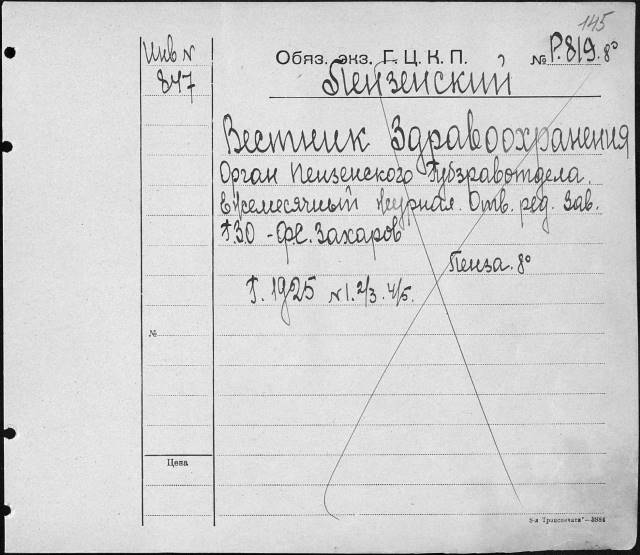 145
Инв N
847
Обяз. экз. Г. Ц. К. П.
№ Р.819. 8°
Пензенский
Вестник Здравоохранения
Орган Пензенского Губздравотдела.
Ежемесячный журнал. Отв. ред. Зав.
ГЗО - Фс. Захаров
Пенза. 8°
Г. 1925 N 1. 2/3. 4/5.
№
Цена